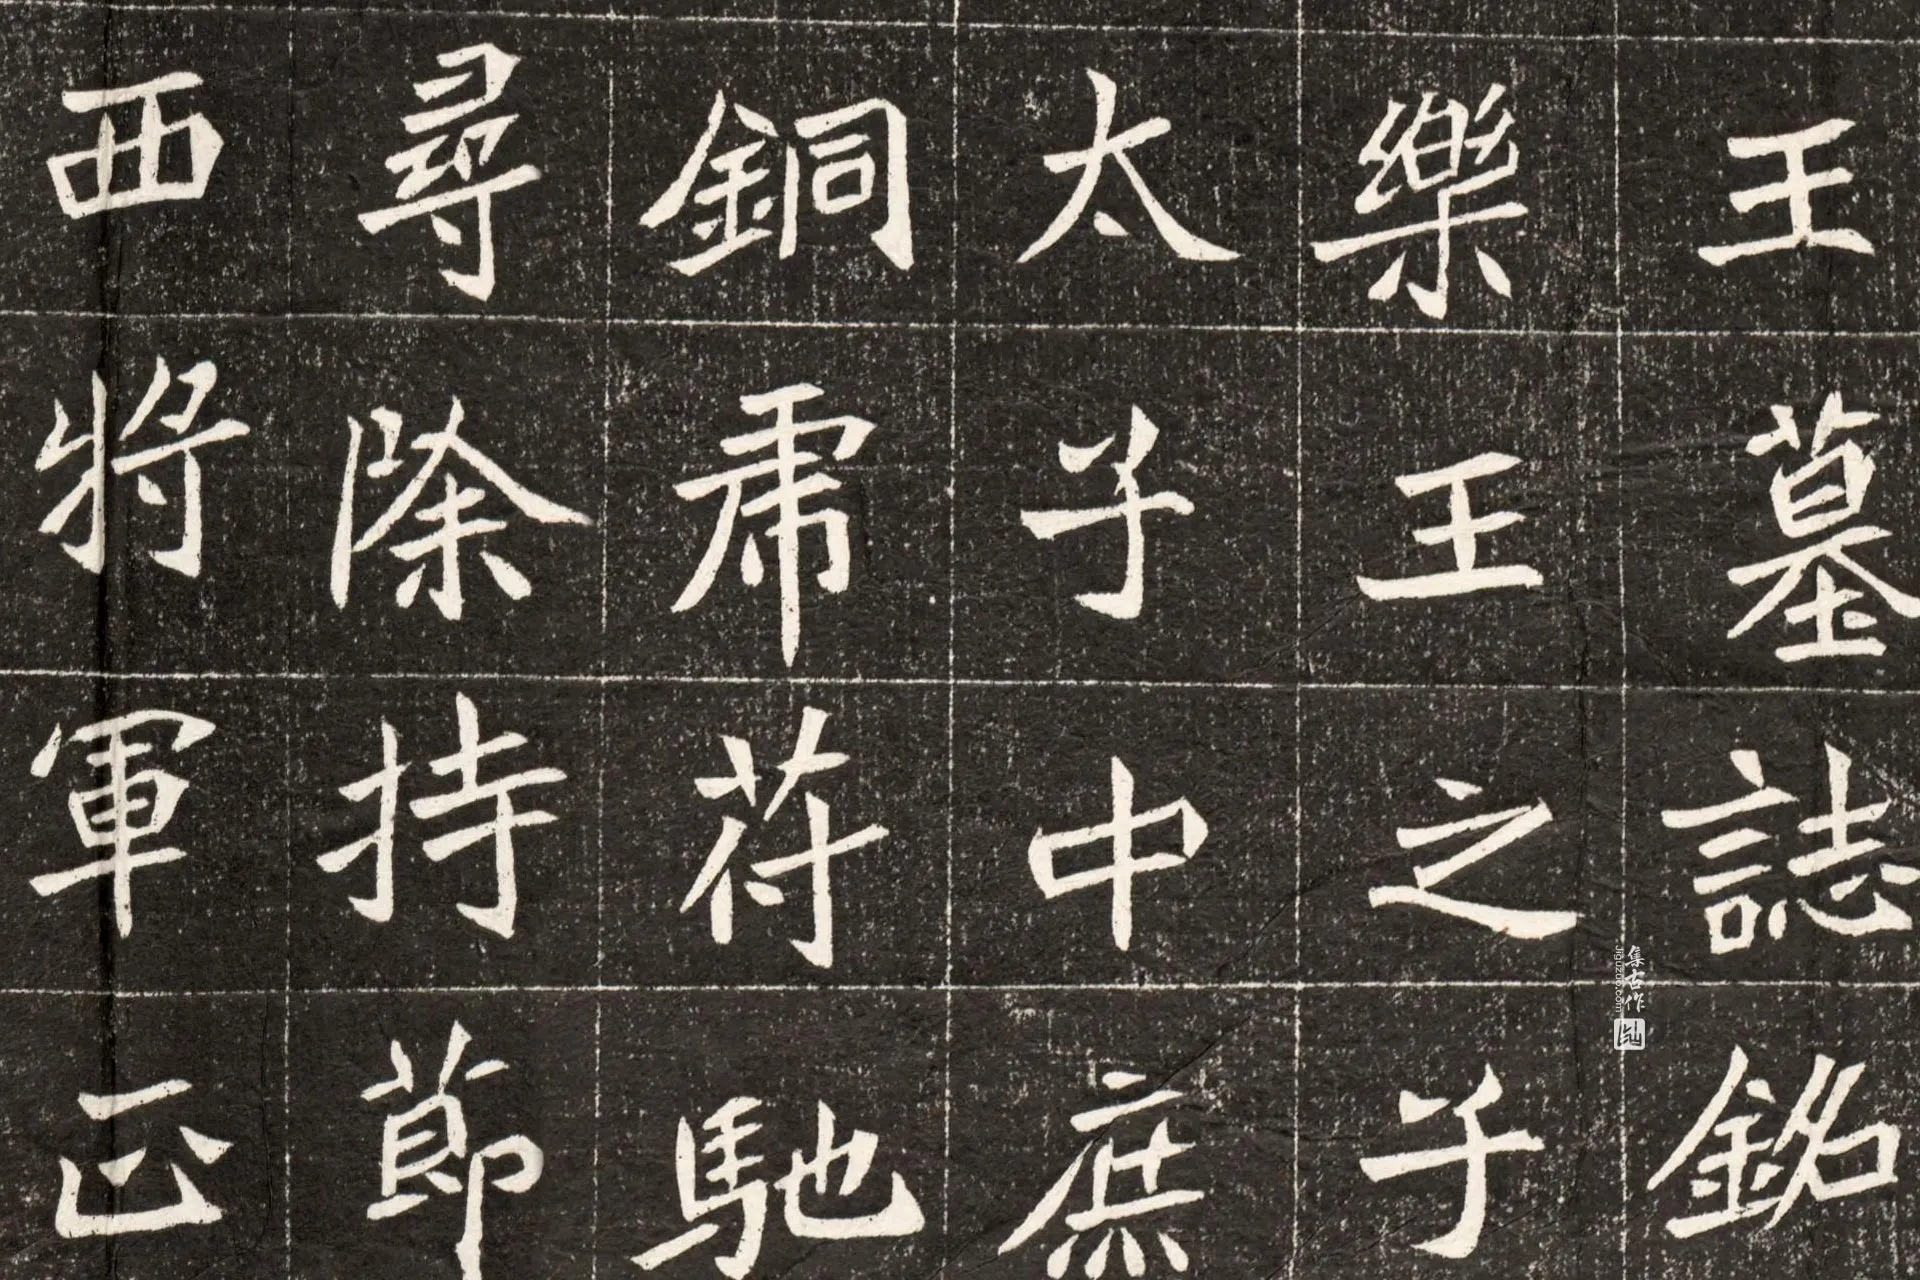 王墓誌銘
樂王之子
太子中庶
銅虎苻馳
尋除持節
西將軍正
集古作
Jiguzuo.com